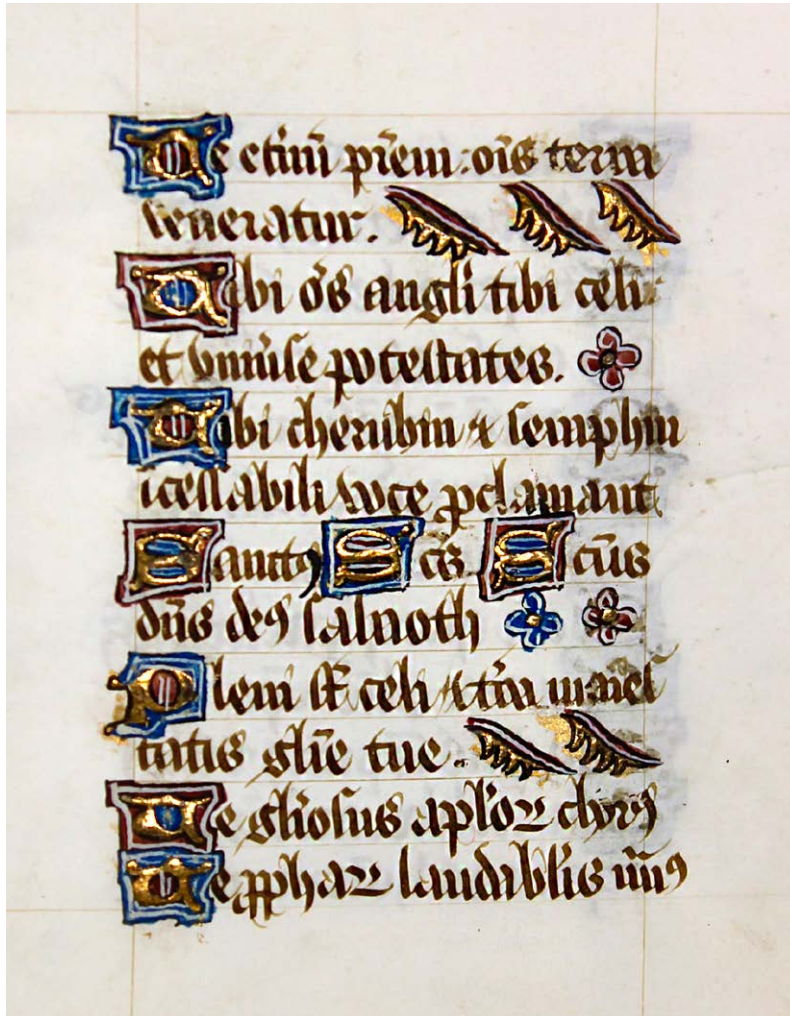 Te etn̄ū pr̄em : oīs terra
veneratur.
Tibi ōs angl̄i tibi celi
et vniu̾se potestates.
Tibi cherubin ⁊ seraphin
īcessabili voce ꝓclamant
Sanctꝰ Sc̄s Sc̄ūs
dn̄s deꝰ sabaoth
Pleni sūt celi ⁊ t̾ra maies
tatis gl̄ie tue.
Te gl̄iosus apl̄oꝝ chorꝰ
Te ꝓphaꝝ laudabl̄is nūꝰ